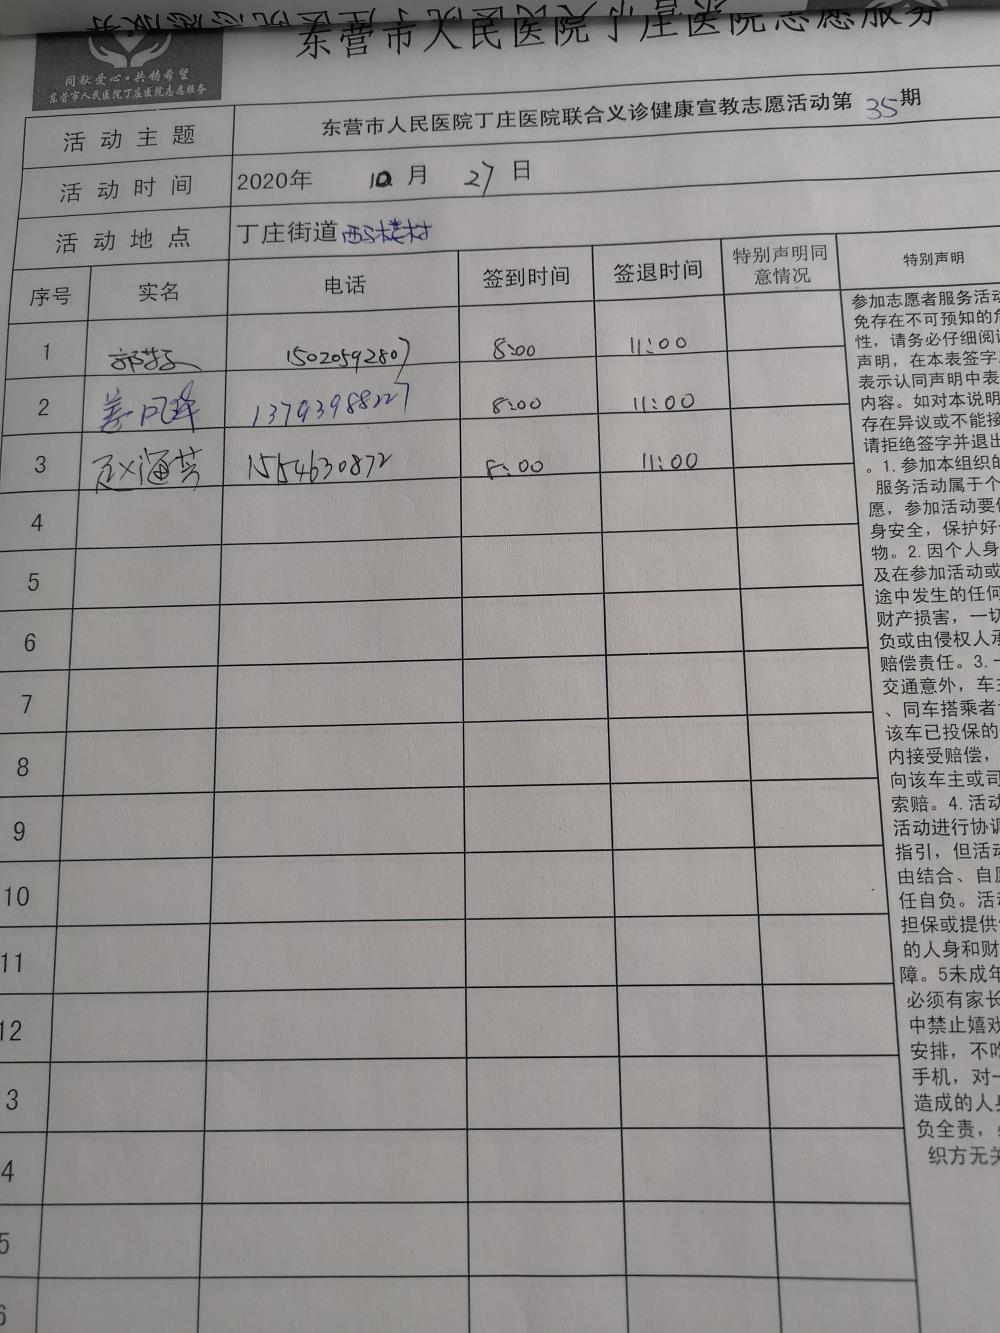 东营市人民医院丁庄医院志愿服务
同献爱心·共铸希望
东营市人民医院丁庄医院志愿服务
活动主题 东营市人民医院丁庄医院联合义诊健康宣教志愿活动第35期
活动时间 2020年 10月 27日
活动地点 丁庄街道
序号 实名 电话 签到时间 签退时间 特别声明同意情况 特别声明
1 15020592807 8:00 11:00
2 13793988227 8:00 11:00
3 赵海芸 15154630872 8:00 11:00
4
5
6
7
8
9
10
11
12
3
4
5
6
参加志愿者服务活动
免存在不可预知的危
性，请务必仔细阅读
声明，在本表签字
表示认同声明中表
内容。如对本说明
存在异议或不能接
请拒绝签字并退出
。1.参加本组织的
服务活动属于个
愿，参加活动要
身安全，保护好
物。2.因个人身
及在参加活动或
途中发生的任何
财产损害，一切
负或由侵权人承
赔偿责任。3.一
交通意外，车主
、同车搭乘者
该车已投保的
内接受赔偿，
向该车主或司
索赔。4.活动
活动进行协调
指引，但活动
由结合、自愿
任自负。活动
担保或提供
的人身和财
障。5未成年
必须有家长
中禁止嬉戏
安排，不吃
手机，对一
造成的人身
负全责，
织方无关